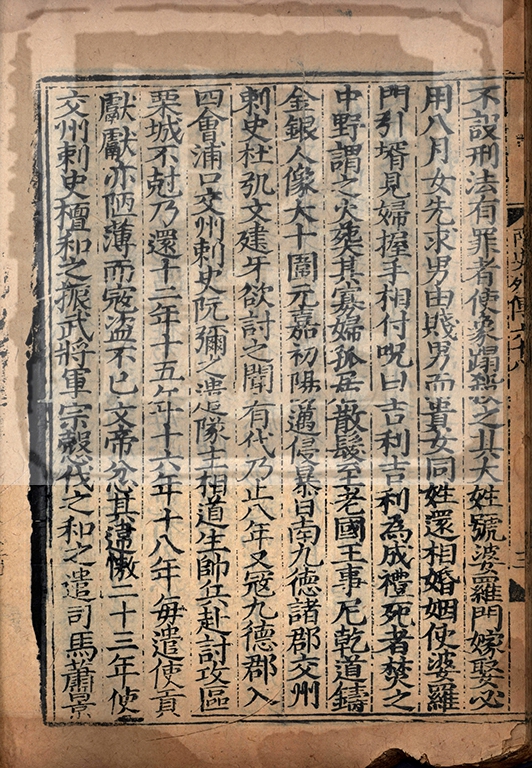 不設刑法有罪者使象蹋殺之其大姓號婆羅門嫁娶必
用八月女先求男由賤男而貴女同姓還相婚姻使婆羅
門引壻見婦握手相付呪曰吉利吉利為成禮死者焚之
中野謂之火葬其寡婦孤居散髮至老國王事尼乾道鑄
金銀人像大十圍元嘉初陽邁侵暴日南九德諸郡交州
刺史杜弘文建牙欲討之聞有代乃止八年又寇九德郡入
四會浦口交州刺史阮彌之遣隊主相道生帥兵赴討攻區
栗城不尅乃還十二年十五年十六年十八年每遣使貢
獻獻亦陋薄而寇盜不已文帝忿其違慠二十三年使
交州刺史檀和之振武將軍宗慤伐之和之遣司馬蕭景